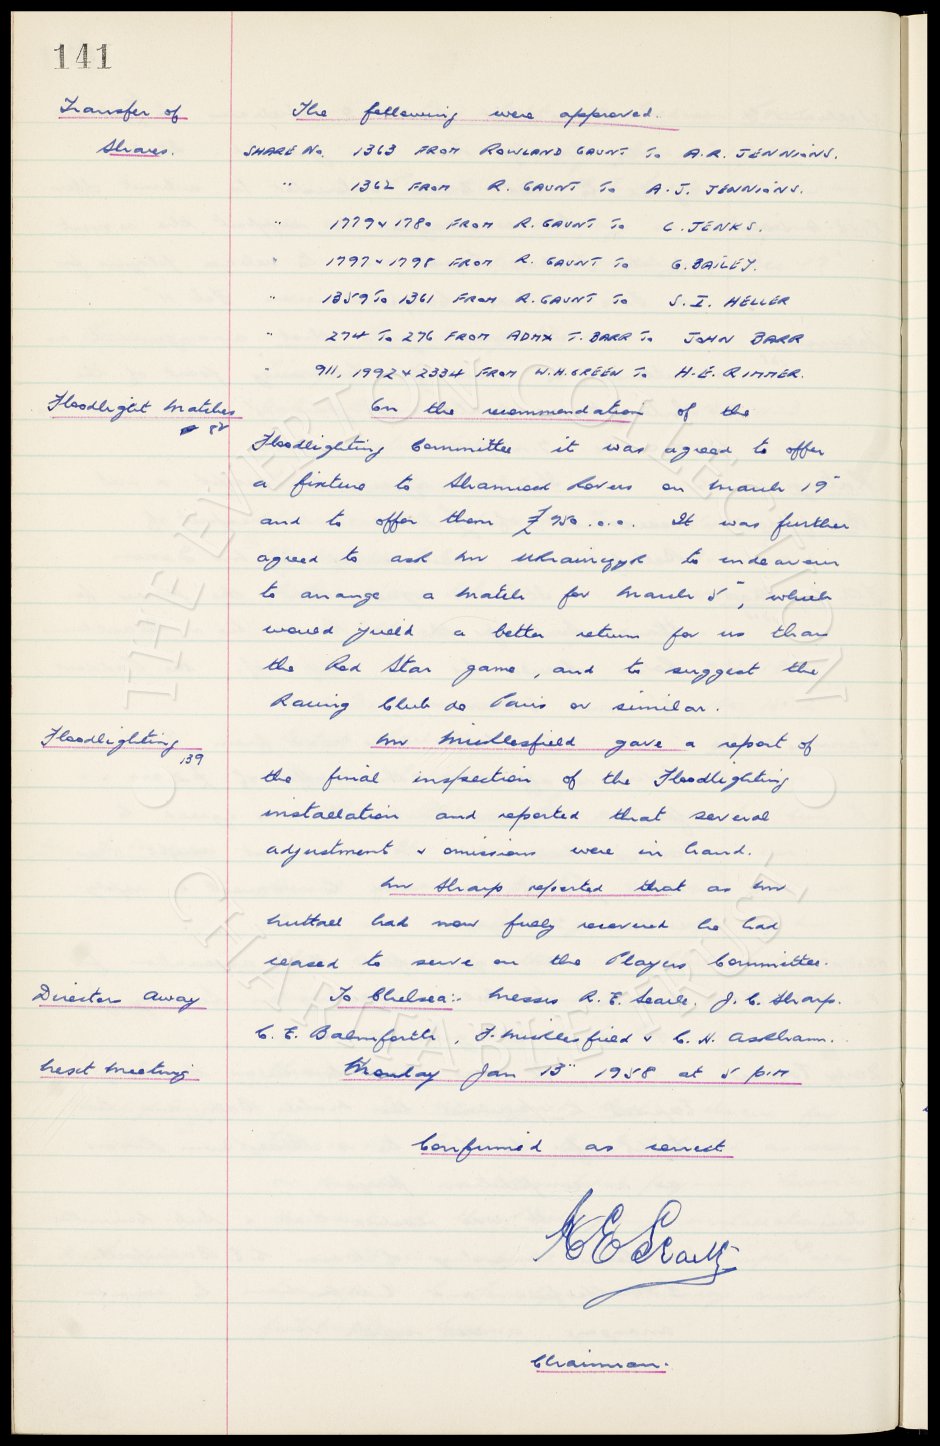 141
Transfer of
Shares.
The following were approved.
SHARE No. 1363 FROM ROWLAND GAUNT To A.R. JENNIONS.
" 1362 FROM R. GAUNT To A.J. JENNIONS.
" 1779 & 1780 FROM R. GAUNT To C. JENKS.
" 1797 & 1798 FROM R. GAUNT To G. BAILEY.
" 1359 To 1361 FROM R. GAUNT To S. I. HELLER
" 274 To 276 FROM ADMX T. BARR To JOHN BARR
" 911, 1992 & 2334 FROM W.H. GREEN To H.E. RIMMER.
Floodlight Matches
82
On the recommendation of the
Floodlighting Committee it was agreed to offer
a fixture to Shamrock Rovers on March 19"
and to offer them £750.0.0. It was further
agreed to ask Mr Ukrainczyk to endeavour
to arrange a match for March 5", which
would yield a better return for us than
the Red Star game, and to suggest the
Racing Club de Paris or similar.
Floodlighting
139
Mr Micklesfield gave a report of
the final inspection of the Floodlighting
installation and reported that several
adjustment & omissions were in hand.
Mr Sharp reported that as Mr
Nuttall had now fully recovered he had
ceased to serve on the Players Committee.
Directors Away
To Chelsea:- Messrs R. E. Searle. J. C. Sharp.
C. E. Balmforth, F. Micklesfield & C. H. Askham.
Next Meeting
Monday Jan 13" 1958 at 5 P.M
Confirmed as correct
Chairman.
THE EVERTON COLLECTION
CHARITABLE TRUST